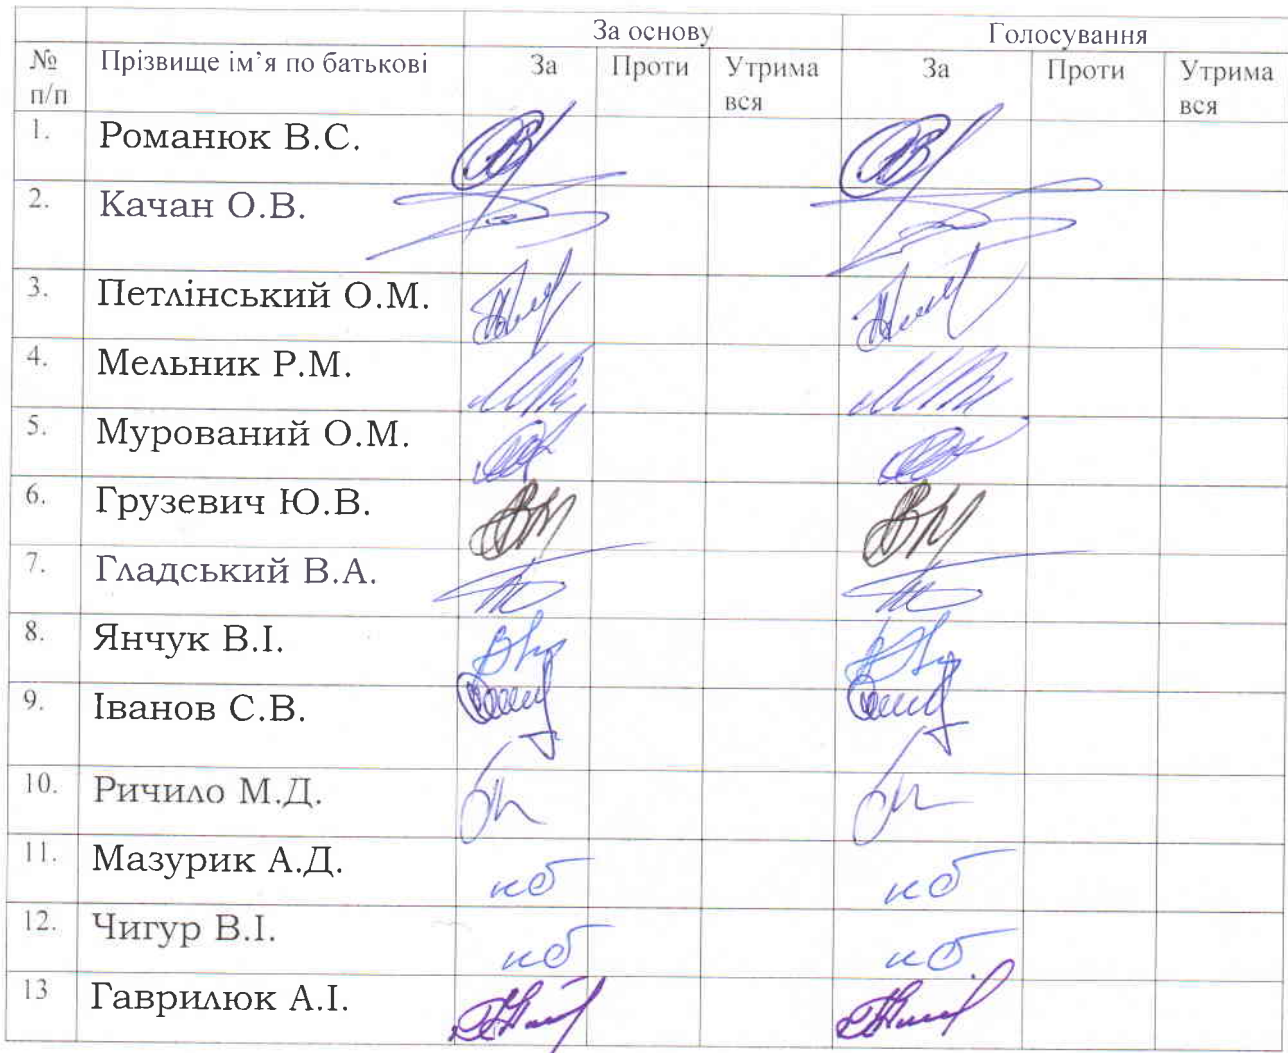 За основу Голосування
№ п/п Прізвище ім’я по батькові За Проти Утрима вся За Проти Утрима вся
1. Романюк В.С.
2. Качан О.В.
3. Петлінський О.М.
4. Мельник Р.М.
5. Мурований О.М.
6. Грузевич Ю.В.
7. Гладський В.А.
8. Янчук В.І.
9. Іванов С.В.
10. Ричило М.Д.
11. Мазурик А.Д. нб нб
12. Чигур В.І. нб нб.
13 Гаврилюк А.І.